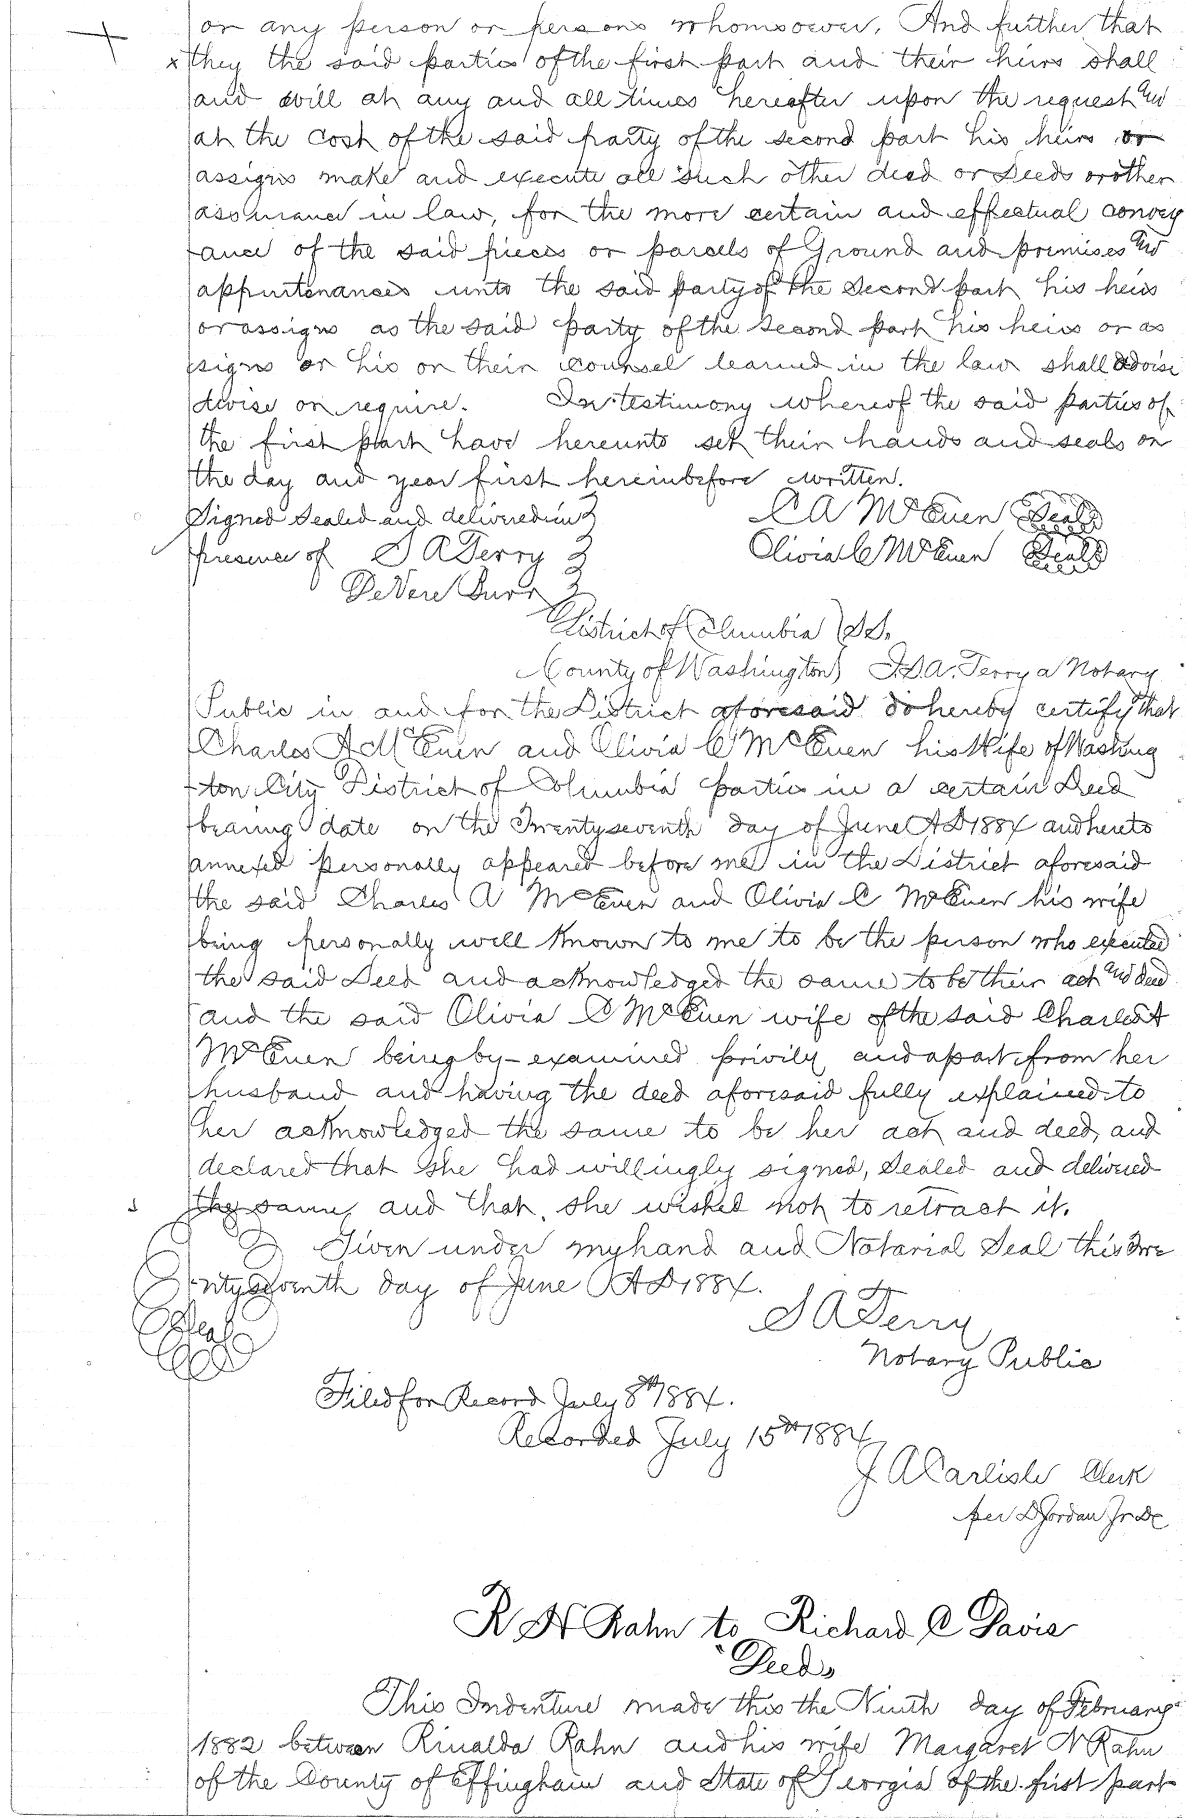 or any person or persons whomsoever. And further that
x they the said parties of the first part and their heirs shall
and will at any and all times hereafter upon the request and
at the cost of the said party of the second part his heirs or
assigns make and execute all such other deed or deeds or other
assurance in law, for the more certain and effectual convey
ance of the said pieces or parcels of Ground and premises and
appurtenances unto the said party of the second part his heirs
or assigns as the said party of the second part his heirs or as
signs or his or their counsel learned in the law shall advise
devise or require. In testimony whereof the said parties of
the first part have hereunto set their hands and seals on
the day and year first hereinbefore written.
Signed Sealed and delivered in C A McEuen Seal
presence of S A Terry Olivia C McEuen Seal
DeVere Burr
District of Columbia SS.
County of Washington I. S. A. Terry a Notary
Public in and for the District aforesaid do hereby certify that
Charles A McEuen and Olivia C McEuen his Wife of Washing
ton City District of Columbia parties in a certain Deed
bearing date on the Twenty seventh day of June AD 1884 and hereto
annexed personally appeared before me in the District aforesaid
the said Charles A McEuen and Olivia C McEuen his wife
being personally well known to me to be the person who executed
the said Deed and acknowledged the same to be their act and deed
and the said Olivia C McEuen wife of the said Charles A
McEuen being by - examined privily and apart from her
husband and having the deed aforesaid fully explained to
her acknowledged the same to be her act and deed, and
declared that she had willingly signed, Sealed and delivered
the same, and that she wished not to retract it.
Given under my hand and Notarial Seal this Twe
nty seventh day of June AD 1884.
Seal
S A Terry
Notary Public
Filed for Record July 8th 1884.
Recorded July 15th 1884
J A Carlisle Clerk
per D Jordan Jr DC
R H Rahn to Richard C Davis
Deed
This Indenture made this the Ninth day of February
1882 between Rinaldo Rahn and his wife Margaret N Rahn
of the County of Effingham and State of Georgia of the first part